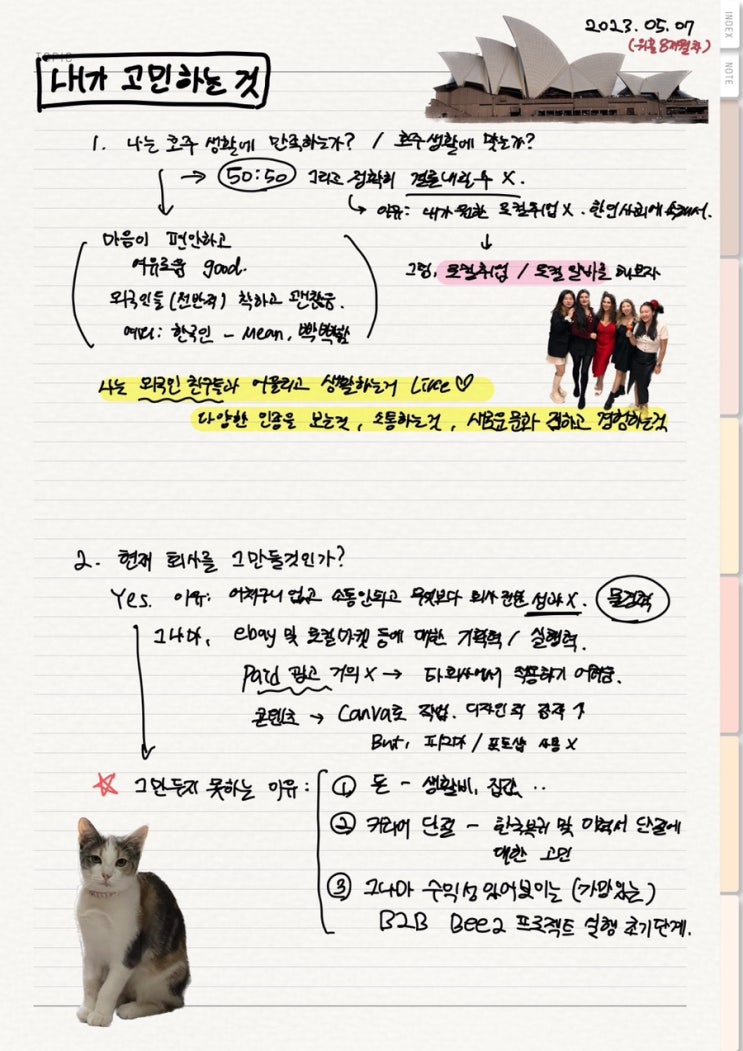 INDEX
NOTE
TOPIC
2023. 05. 07
내가 고민하는 것
1. 나는 호주 생활에 만족하는가? / 호주생활에 맞는가?
→ 50:50 그리고 정확히 결론내릴 수 X.
이유: 내가 원한 로컬취업 X. 한인사회에 속해서.
마음이 편안하고
여유로움 good.
그럼, 로컬취업 / 로컬 알바를 해보자
외국인들 (전반적) 착하고 괜찮음.
한국인 - Mean,
나는 외국인 친구들과 어울리고 생활하는거 Like ♡
다양한 인종을 보는것, 소통하는것, 새로운 문화 접하고 경험하는것
2. 현재 회사를 그만둘것인가?
Yes. 이유: 어처구니 없고 소통안되고 무엇보다 회사 관련 성과 X.
그나마, ebay 및 로컬마켓 등에 대한 기획력 / 실행력.
Paid 광고 거의 X → 타회사에서 적용하기 어려움.
콘텐츠 → Canva로 작업. 디자인적 감각 ↑
But, 피그마 / 포토샵 사용 X
☆ 그만두지 못하는 이유:
① 돈 - 생활비, 집값 ..
② 커리어 단절 - 한국복귀 및 이력서 단절에
대한 고민
③ 그나마 수익성 있어보이는 (가망있는)
B2B 프로젝트 실행 초기단계.